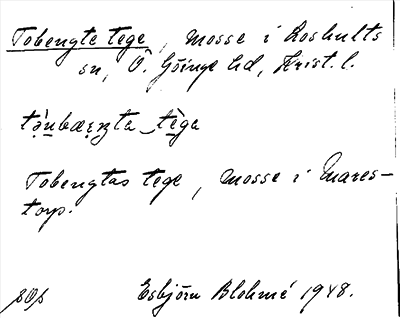 Tobengte tege, mosse i Loshults
sn, Ö. Göinge hd, Krist. l.
Tobengtas tege, mosse i Mares-
torp.
Esbjörn Blohmé 1948.